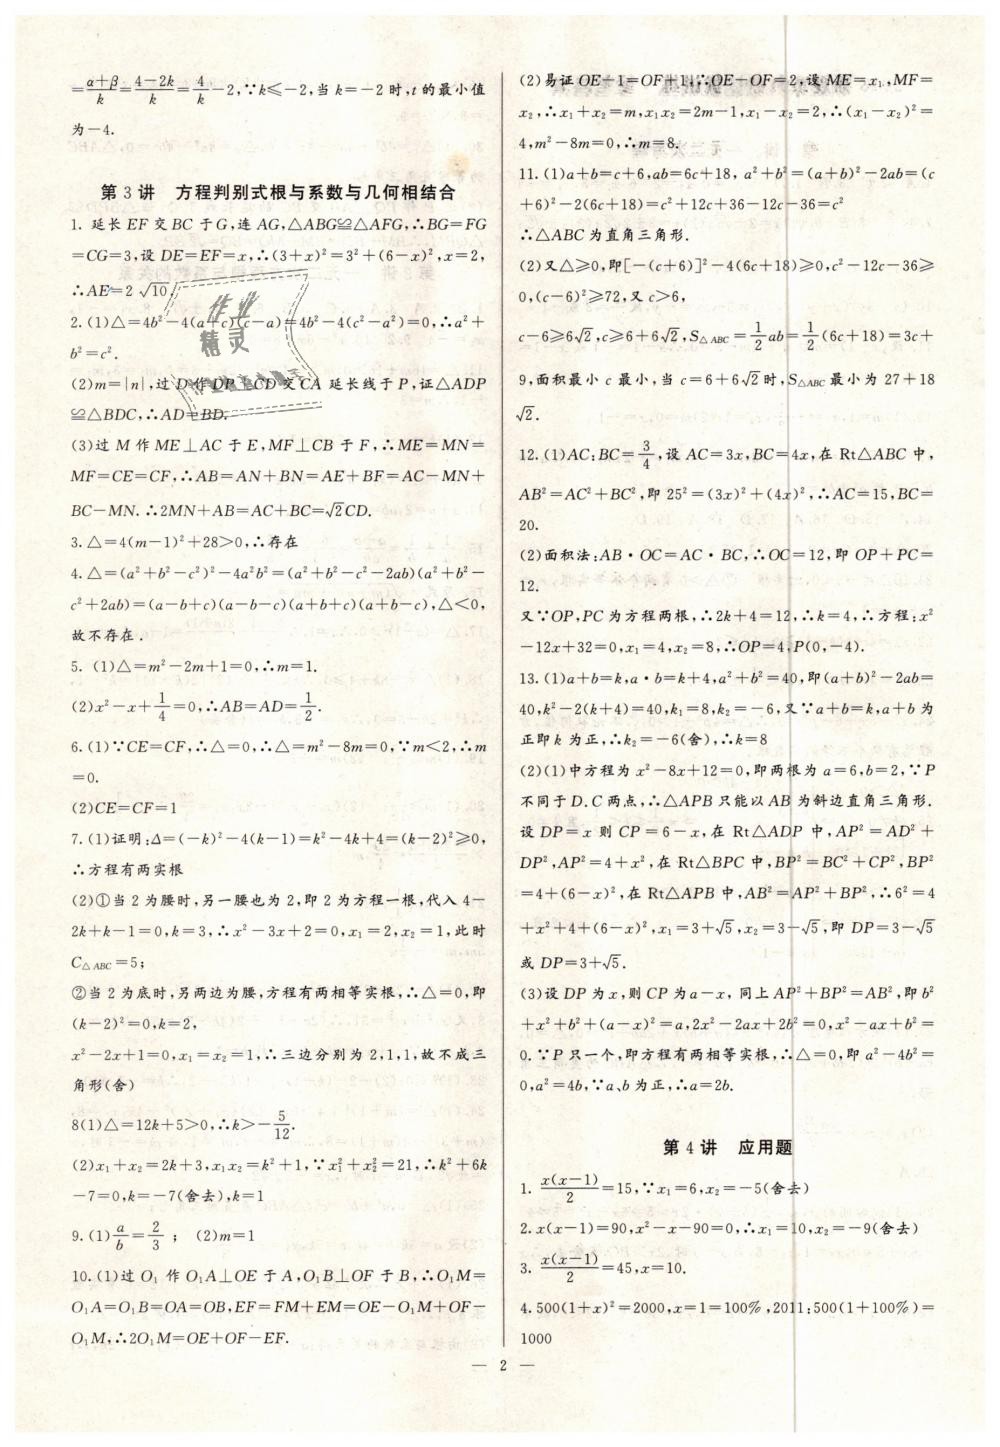 =α+β/k=4-2k/k=4/k-2,∵k≤-2,当 k=-2 时,t 的最小值
为-4.
第 3 讲　方程判别式根与系数与几何相结合
1. 延长 EF 交 BC 于 G,连 AG,△ABG≌△AFG,∴BG=FG
=CG=3,设 DE=EF=x,∴(3+x)²=3²+(6-x)²,x=2,
∴AE=2√10
2.(1)△=4b²-4(a+c)(c-a)=4b²-4(c²-a²)=0,∴a²+
b²=c².
(2)m=|n|,过 D 作 DP⊥CD 交 CA 延长线于 P,证△ADP
≌△BDC,∴AD=BD.
(3)过 M 作 ME⊥AC 于 E,MF⊥CB 于 F,∴ME=MN=
MF=CE=CF,∴AB=AN+BN=AE+BF=AC-MN+
BC-MN.∴2MN+AB=AC+BC=√2CD.
3.△=4(m-1)²+28>0,∴存在
4.△=(a²+b²-c²)²-4a²b²=(a²+b²-c²-2ab)(a²+b²-
c²+2ab)=(a-b+c)(a-b-c)(a+b+c)(a+b-c),△<0,
故不存在.
5. (1)△=m²-2m+1=0,∴m=1.
(2)x²-x+1/4=0,∴AB=AD=1/2.
6.(1)∵CE=CF,∴△=0,∴△=m²-8m=0,∵m<2,∴m
=0.
(2)CE=CF=1
7.(1)证明:Δ=(-k)²-4(k-1)=k²-4k+4=(k-2)²≥0,
∴方程有两实根
(2)①当 2 为腰时,另一腰也为 2,即 2 为方程一根,代入 4-
2k+k-1=0,k=3,∴x²-3x+2=0,x₁=2,x₂=1,此时
C△ABC=5;
②当 2 为底时,另两边为腰,方程有两相等实根,∴△=0,即
(k-2)²=0,k=2,
x²-2x+1=0,x₁=x₂=1,∴三边分别为 2,1,1,故不成三
角形(舍)
8(1)△=12k+5>0,∴k>-5/12.
(2)x₁+x₂=2k+3,x₁x₂=k²+1,∵x₁²+x₂²=21,∴k²+6k
-7=0,k=-7(舍去),k=1
9.(1)a/b=2/3; (2)m=1
10.(1)过 O₁ 作 O₁A⊥OE 于 A,O₁B⊥OF 于 B,∴O₁M=
O₁A=O₁B=OA=OB,EF=FM+EM=OE-O₁M+OF-
O₁M,∴2O₁M=OE+OF-EF.
(2)易证 OE-1=OF+1,∴OE-OF=2,设 ME=x₁,MF=
x₂,∴x₁+x₂=m,x₁x₂=2m-1,x₁-x₂=2,∴(x₁-x₂)²=
4,m²-8m=0,∴m=8.
11.(1)a+b=c+6,ab=6c+18, a²+b²=(a+b)²-2ab=(c
+6)²-2(6c+18)=c²+12c+36-12c-36=c²
∴△ABC 为直角三角形.
(2)又△≥0,即[-(c+6)]²-4(6c+18)≥0,c²-12c-36≥
0,(c-6)²≥72,又 c>6,
c-6≥6√2,c≥6+6√2,S△ABC=1/2ab=1/2(6c+18)=3c+
9,面积最小 c 最小,当 c=6+6√2时,S△ABC最小为 27+18
√2.
12.(1)AC:BC=3/4,设 AC=3x,BC=4x,在 Rt△ABC 中,
AB²=AC²+BC²,即 25²=(3x)²+(4x)²,∴AC=15,BC=
20.
(2)面积法:AB·OC=AC·BC,∴OC=12,即 OP+PC=
12.
又∵OP,PC 为方程两根,∴2k+4=12,∴k=4,∴方程:x²
-12x+32=0,x₁=4,x₂=8,∴OP=4,P(0,-4).
13.(1)a+b=k,a·b=k+4,a²+b²=40,即(a+b)²-2ab=
40,k²-2(k+4)=40,k₁=8,k₂=-6,又∵a+b=k,a+b 为
正即 k 为正,∴k₂=-6(舍),∴k=8
(2)(1)中方程为 x²-8x+12=0,即两根为 a=6,b=2,∵P
不同于 D.C 两点,∴△APB 只能以 AB 为斜边直角三角形.
设 DP=x 则 CP=6-x,在 Rt△ADP 中,AP²=AD²+
DP²,AP²=4+x²,在 Rt△BPC 中,BP²=BC²+CP²,BP²
=4+(6-x)²,在 Rt△APB 中,AB²=AP²+BP²,∴6²=4
+x²+4+(6-x)²,x₁=3+√5,x₂=3-√5,即 DP=3-√5
或 DP=3+√5.
(3)设 DP 为 x,则 CP 为 a-x, 同上 AP²+BP²=AB²,即 b²
+x²+b²+(a-x)²=a,2x²-2ax+2b²=0,x²-ax+b²=
0.∵P 只一个,即方程有两相等实根,∴△=0,即 a²-4b²=
0,a²=4b,∵a、b 为正,∴a=2b.
第 4 讲　应用题
1. x(x-1)/2=15,∵x₁=6,x₂=-5(舍去)
2.x(x-1)=90,x²-x-90=0,∴x₁=10,x₂=-9(舍去)
3. x(x-1)/2=45,x=10.
4.500(1+x)²=2000,x=1=100%,2011:500(1+100%)=
1000
— 2 —
作业
精灵